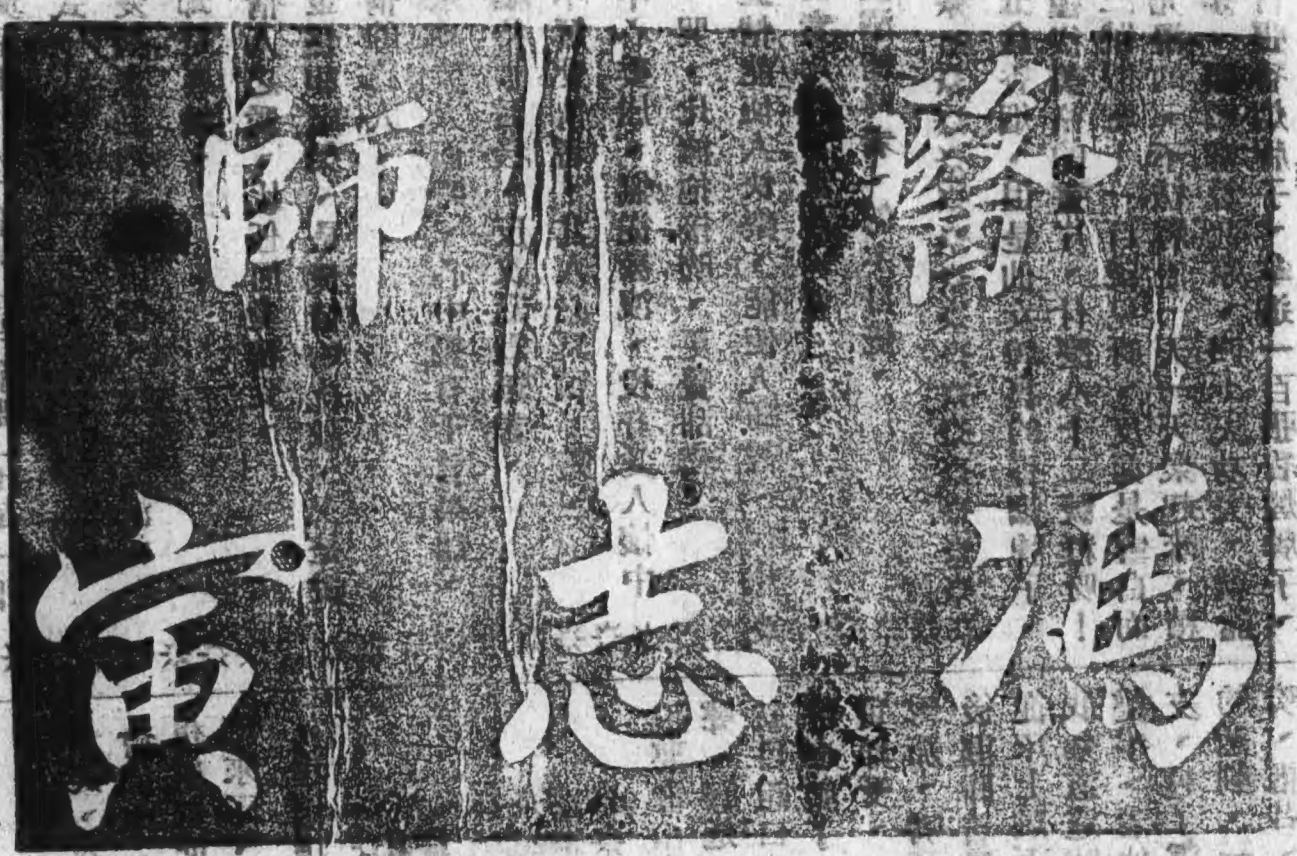 師
馮志寅